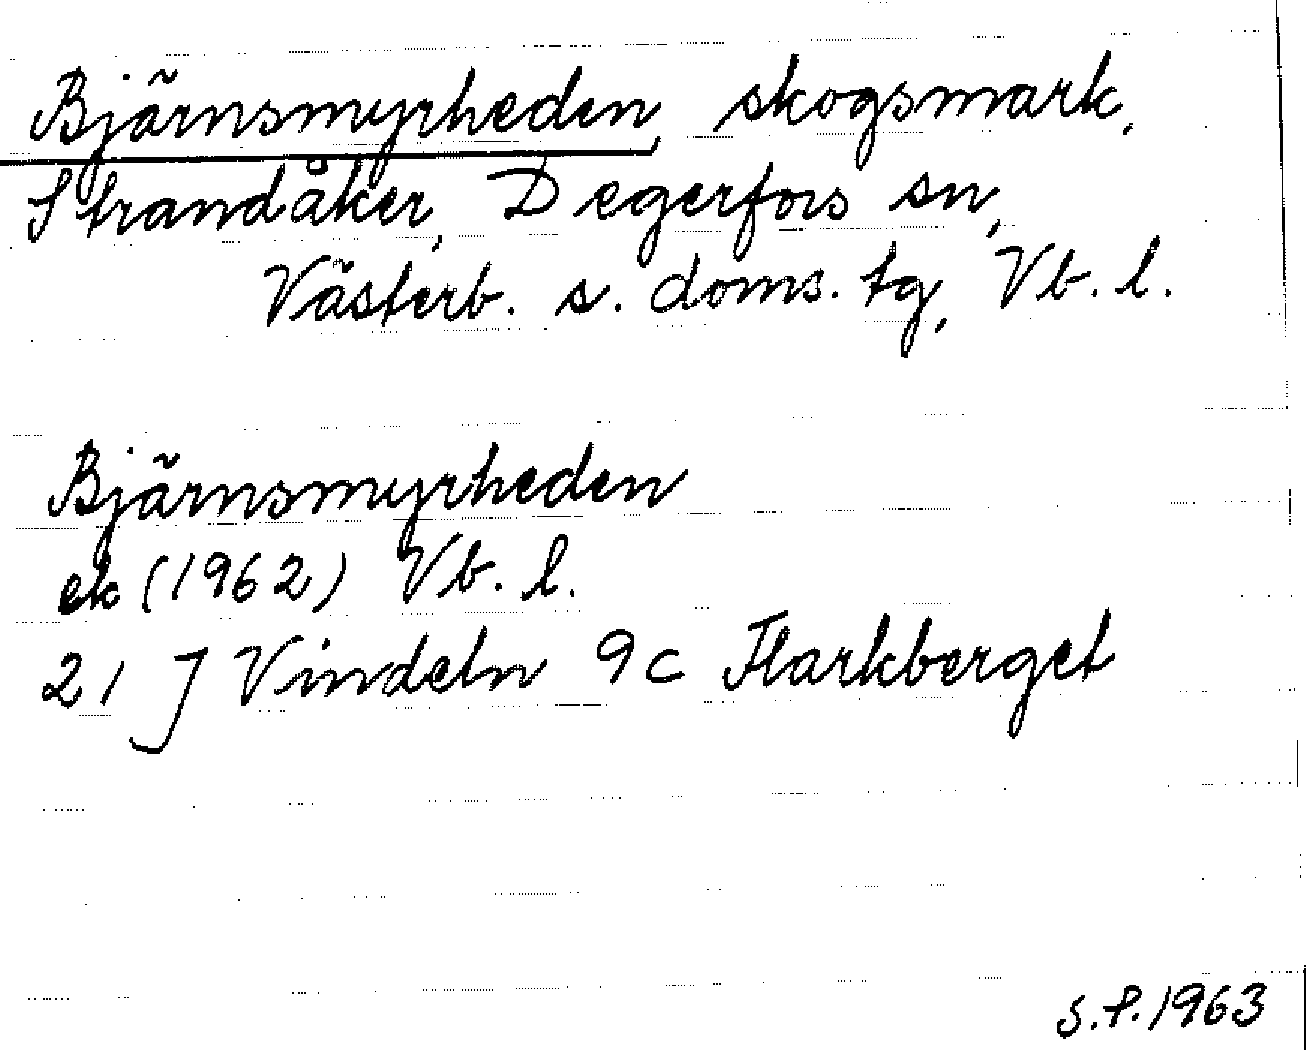 Bjärnsmyrheden, skogsmark,
Strandåker, Degerfors sn,
Västerb. s. doms. tg, Vb. l.
Bjärnsmyrheden
ek (1962) Vb. l.
21 J Vindeln 9c Flarkberget
S.P. 1963